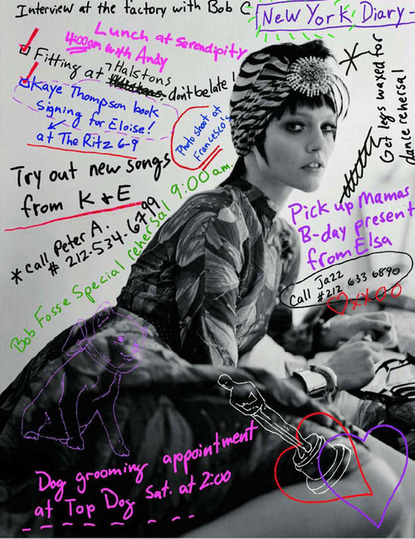 Interview at the factory with Bob C.
New York Diary-
Lunch at serendipity
4:00am with Andy
Fitting at Halstons
don't be late!
Kaye Thompson book
Signing for Eloise!
at The Ritz 6-9
Photo shoot at
Francesco's
Get legs waxed for
dance rehersal
Try out new songs
from K & E
* call Peter A.
# 212-534-6799
Bob Fosse Special rehersal 9:00 a.m.
Pick up Mamas
B-day present
from Elsa
Call Jazz
#212 633 6890
xxoo
Dog grooming appointment
at Top Dog Sat. at 2:00